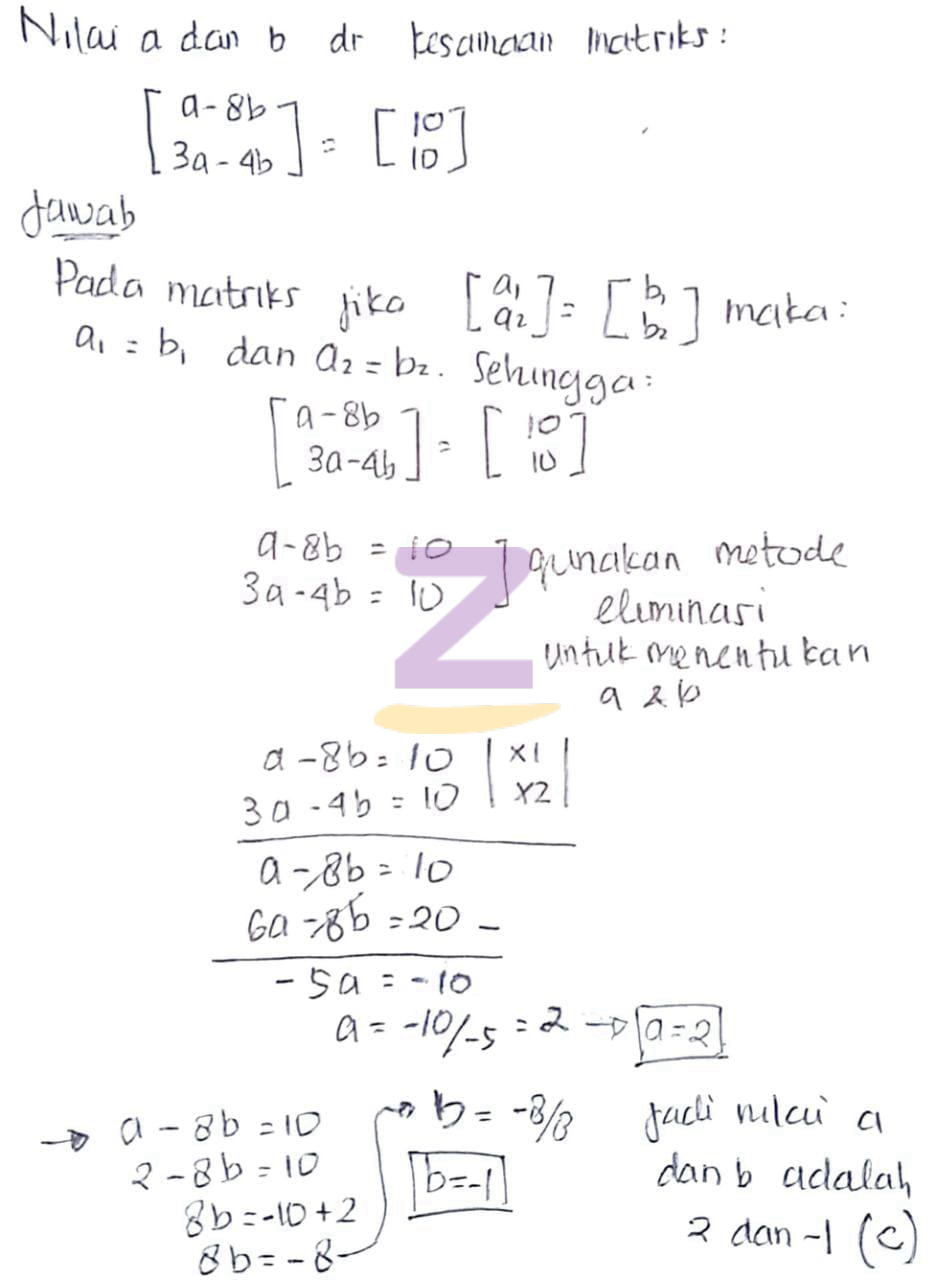 Nilai a dan b dr kesamaan matriks:
[a - 8b
3a - 4b] = [10
10]
Jawab
Pada matriks jika [a₁
a₂] = [b₁
b₂] maka:
a₁ = b₁ dan a₂ = b₂. Sehingga:
[a - 8b
3a - 4b] = [10
10]
a - 8b = 10
3a - 4b = 10 ] gunakan metode
eliminasi
untuk menentukan
a & b
a - 8b = 10 | x1 |
3a - 4b = 10 | x2 |
a - 8b = 10
6a - 8b = 20 -
-5a = -10
a = -10/-5 = 2 → a = 2
→ a - 8b = 10
2 - 8b = 10
8b = -10 + 2
8b = -8
→ b = -8/8
b = -1
Jadi nilai a
dan b adalah
2 dan -1 (c)